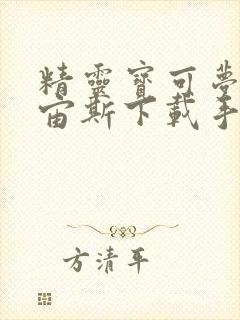 精靈寶可夢
宙斯下載手
方清平